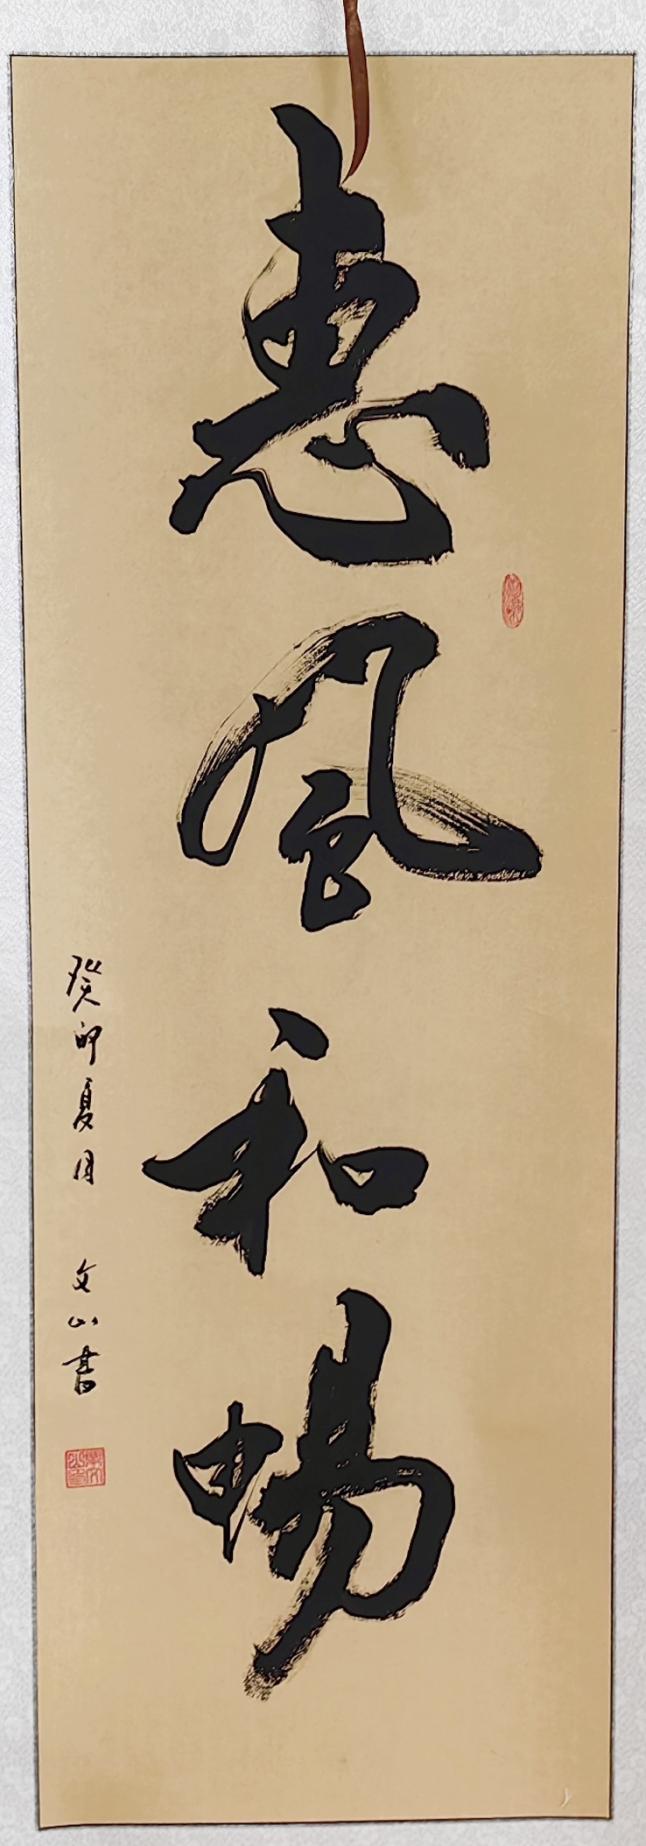 惠风和畅
癸卯夏月 文山书